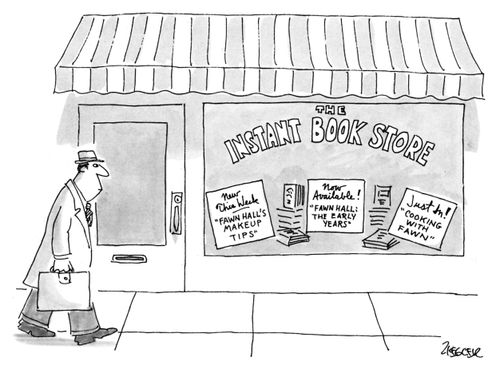 THE
INSTANT BOOK STORE
New
This Week
"FAWN HALL'S
MAKEUP
TIPS"
Now
Available!
"FAWN HALL:
THE EARLY
YEARS"
Just In!
"COOKING
WITH
FAWN"
ZIEGLER